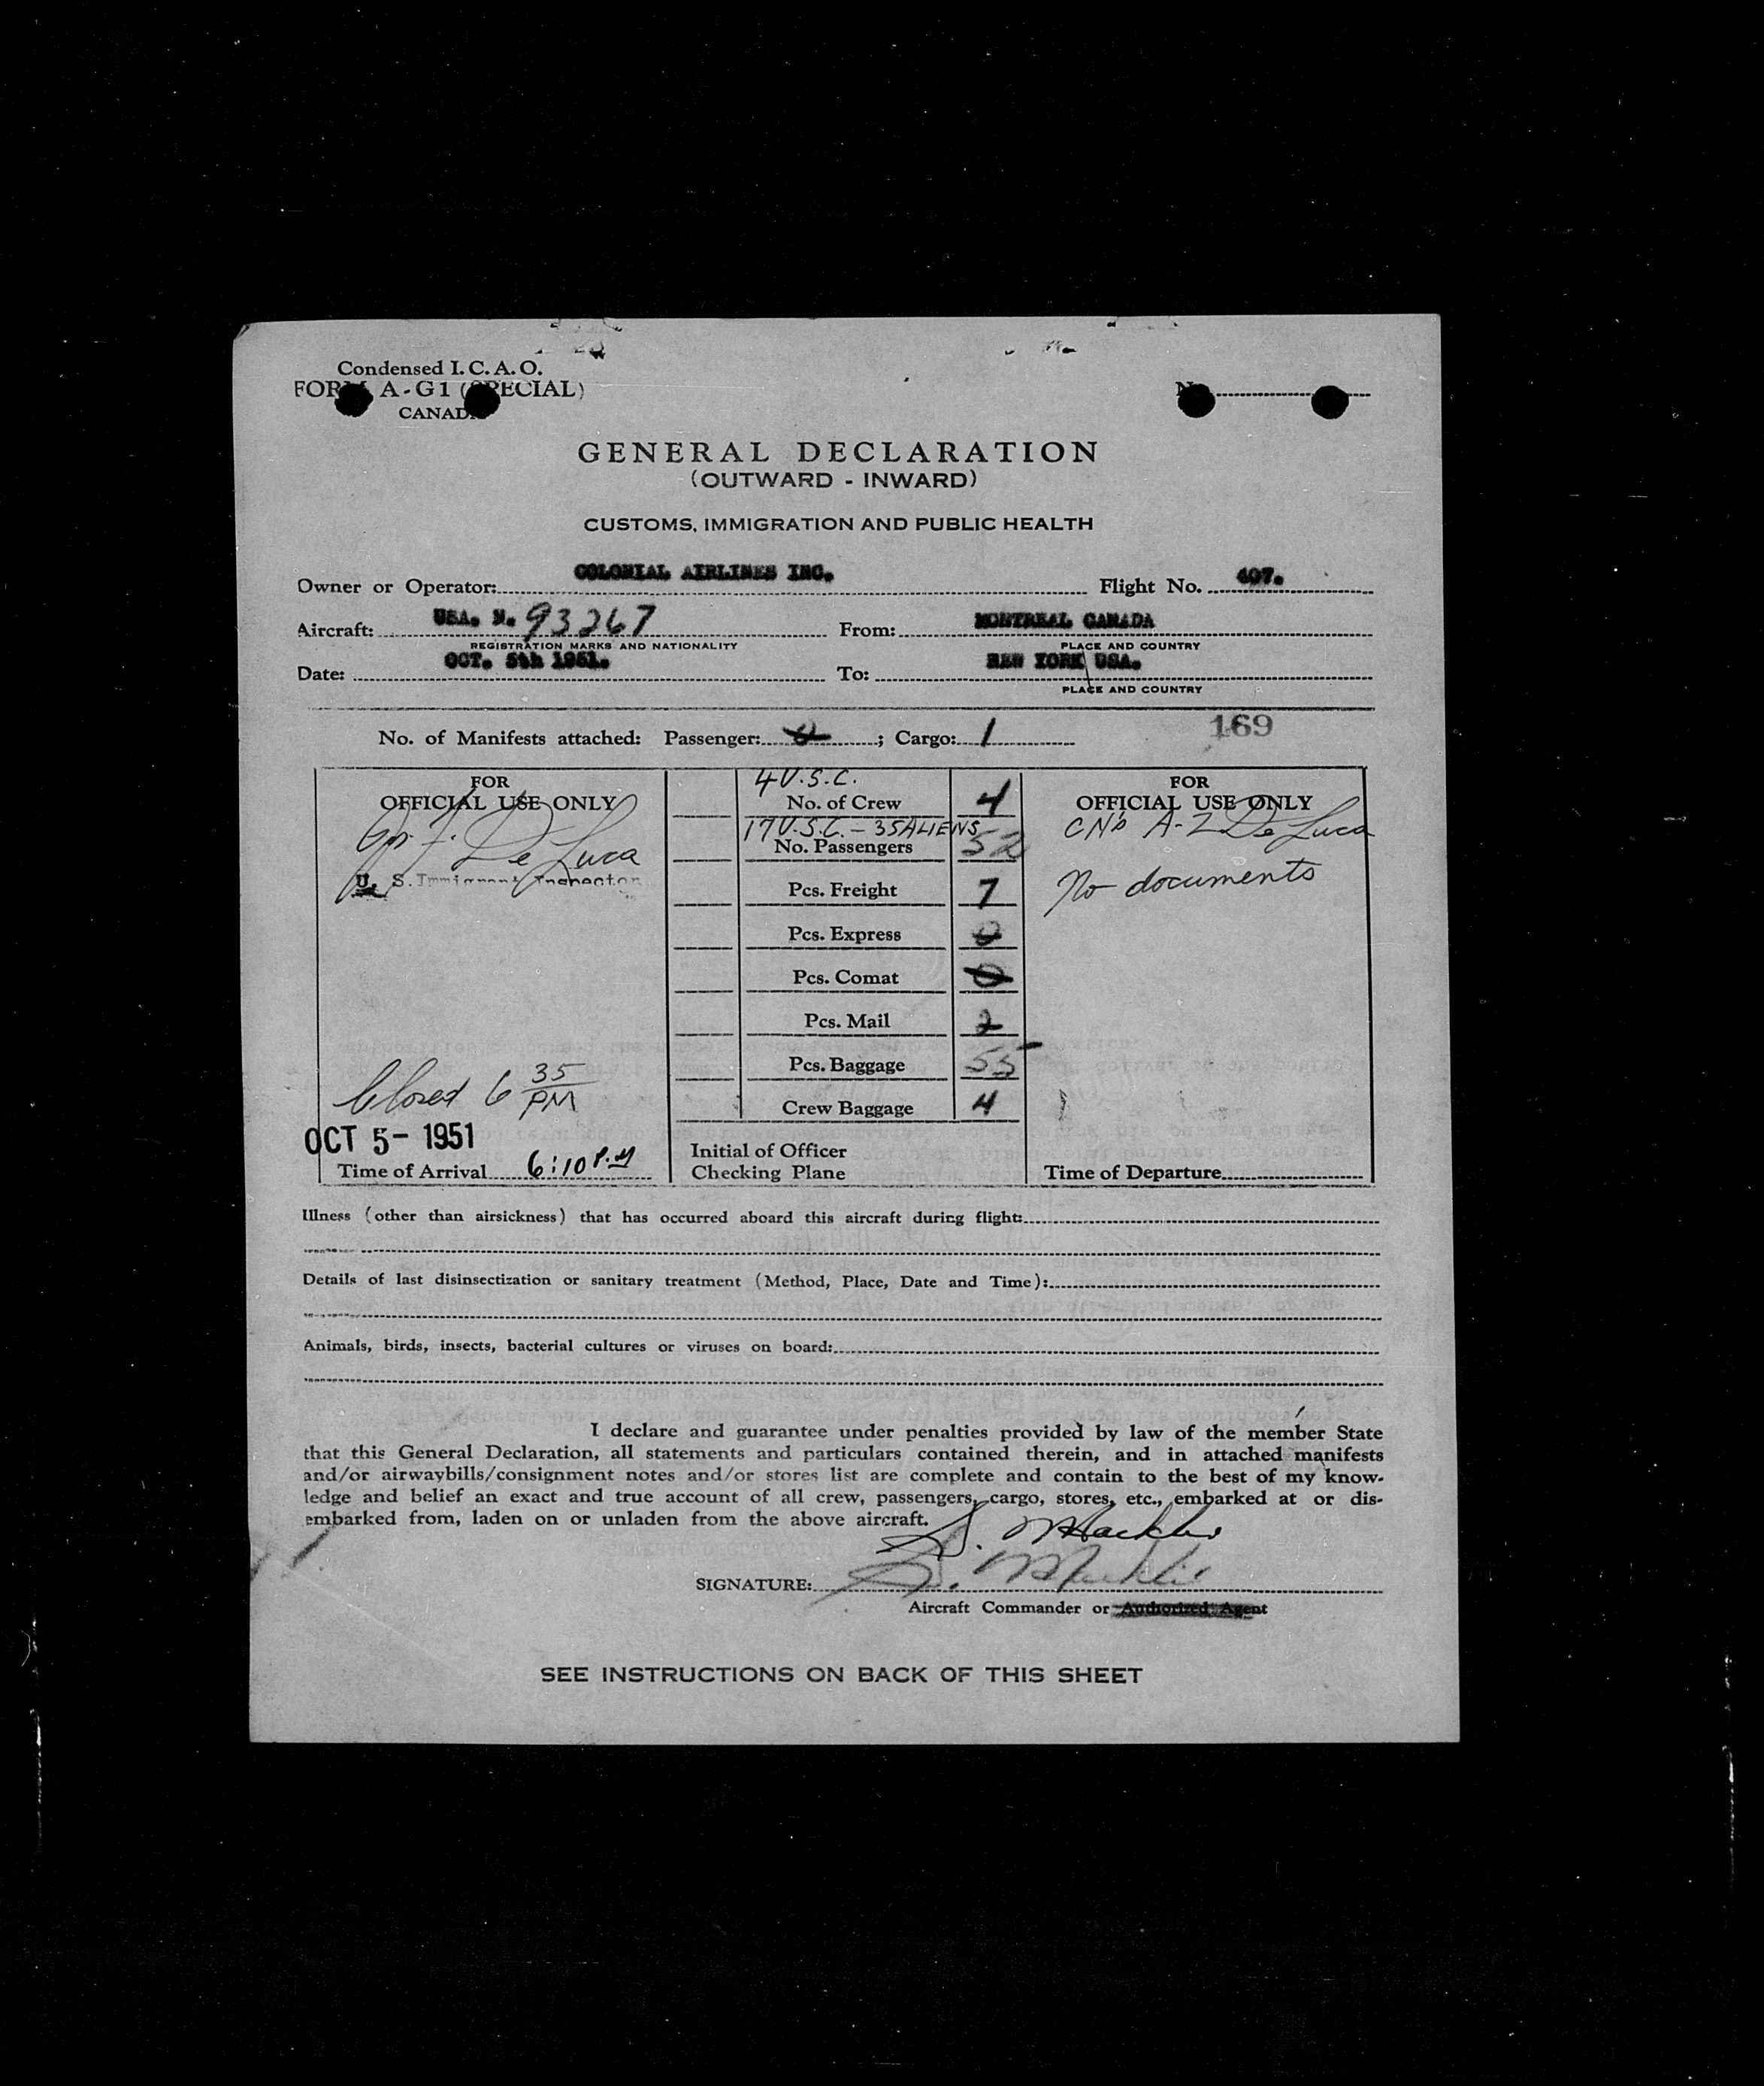 Condensed I. C. A. O.
FORM A-G1 (SPECIAL)
CANADA
No
GENERAL DECLARATION
(OUTWARD - INWARD)
CUSTOMS, IMMIGRATION AND PUBLIC HEALTH
Owner or Operator: COLONIAL AIRLINES INC. Flight No. 407.
Aircraft: USA. N. 93267 From: MONTREAL CANADA
REGISTRATION MARKS AND NATIONALITY PLACE AND COUNTRY
Date: OCT. 5th 1951. To: NEW YORK USA.
PLACE AND COUNTRY
169
No. of Manifests attached: Passenger: 0 ; Cargo: 1
FOR
OFFICIAL USE ONLY
De Luca
U. S. Immigrant Inspector
Closed 6 35 PM
OCT 5- 1951
Time of Arrival 6:10 P.M
4 U.S.C.
No. of Crew 4
17 U.S.C. - 35 ALIENS
No. Passengers 52
Pcs. Freight 7
Pcs. Express 0
Pcs. Comat 0
Pcs. Mail 2
Pcs. Baggage 55
Crew Baggage 4
Initial of Officer
Checking Plane
FOR
OFFICIAL USE ONLY
A-Z De Luca
No documents
Time of Departure
Illness (other than airsickness) that has occurred aboard this aircraft during flight:
Details of last disinsectization or sanitary treatment (Method, Place, Date and Time):
Animals, birds, insects, bacterial cultures or viruses on board:
I declare and guarantee under penalties provided by law of the member State
that this General Declaration, all statements and particulars contained therein, and in attached manifests
and/or airwaybills/consignment notes and/or stores list are complete and contain to the best of my know-
ledge and belief an exact and true account of all crew, passengers, cargo, stores, etc., embarked at or dis-
embarked from, laden on or unladen from the above aircraft.
SIGNATURE:
Aircraft Commander or Authorized Agent
SEE INSTRUCTIONS ON BACK OF THIS SHEET